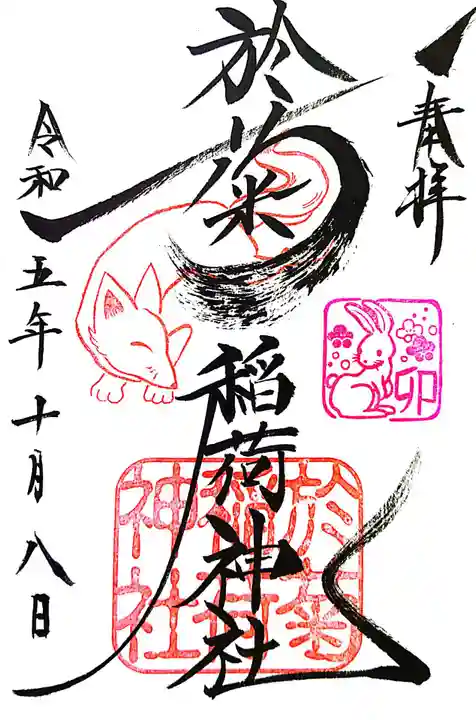 奉拝
卯
於菊稲荷神社
於菊
稲荷
神社
令和五年十月八日